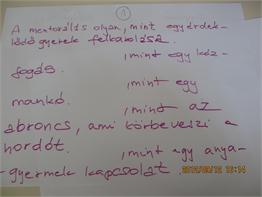 1
A mentorálás olyan, mint egy érdek-
lődő gyerek felkarolása.
, mint egy kéz-
fogás.
, mint egy
mankó.
, mint az
abroncs, ami körbeveszi a
hordót.
, mint egy anya-
-gyermek kapcsolat.